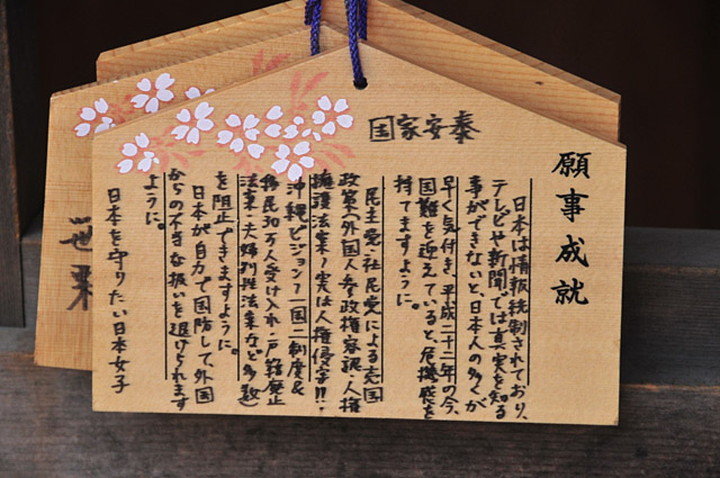 願事成就
国家安泰
日本は情報統制されており、
テレビや新聞では真実を知る
事ができないと、日本人の多くが
早く気付き、平成二十二年の今、
国難を迎えていると、危機感を
持てますように。
民主党・社民党による売国
政策(外国人参政権容認・人権
擁護法案(実は人権侵害!!・
沖縄ビジョン(一国二制度&
移民30万人受け入れ・戸籍廃止
法案・夫婦別性法案など多数)
を阻止できますように。
日本が自力で国防して、外国
からの不当な扱いを退けられます
ように。
日本を守りたい日本女子